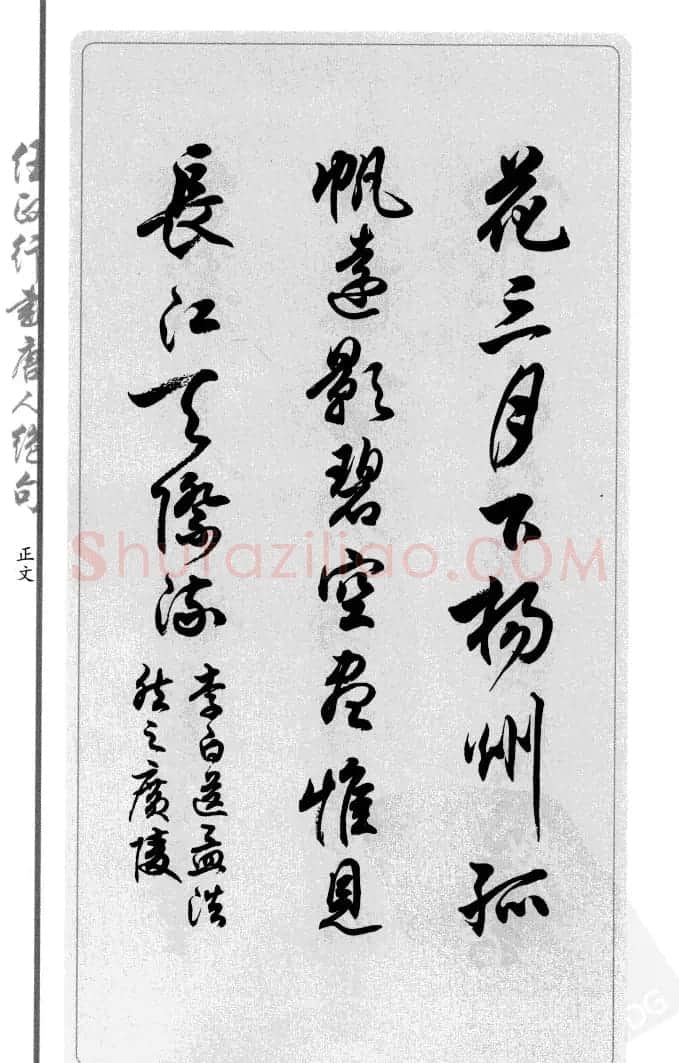 花三月下揚州孤
帆遠影碧空盡惟見
長江天際流
李白送孟浩
然之廣陵
任政行書唐人绝句
正文
Shufaziliao.COM